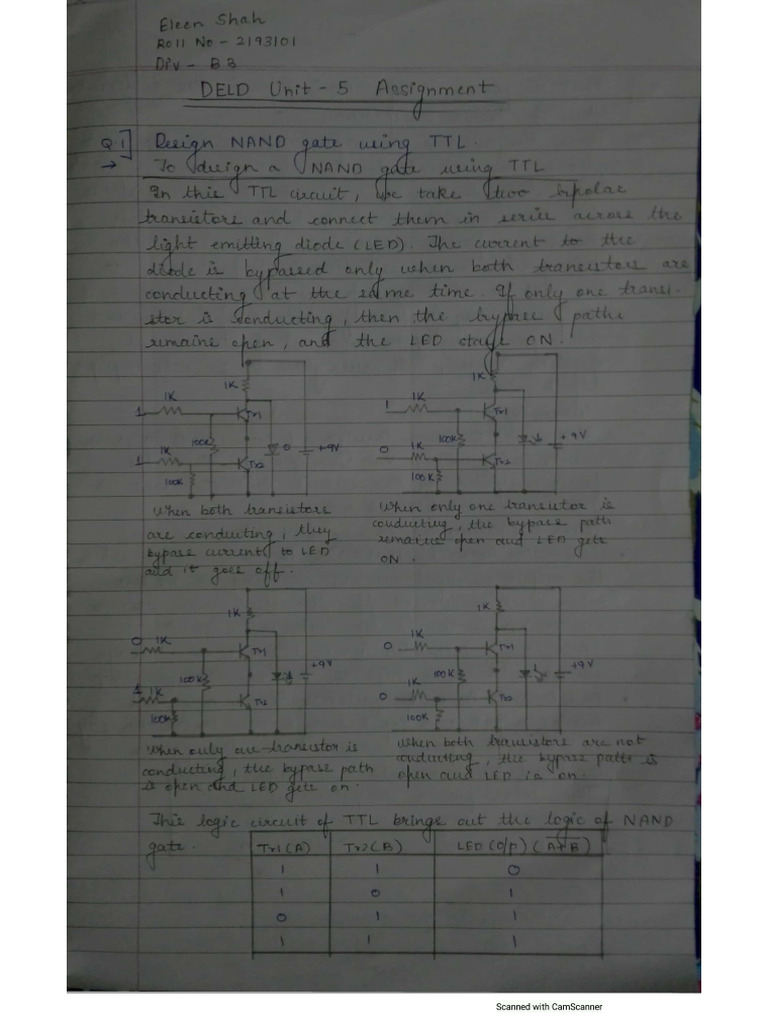 Eleen Shah
Roll No - 2193101
Div - B3
DELD Unit - 5 Assignment
Q.1] Design NAND gate using TTL.
→ To design a NAND gate using TTL
In this TTL circuit, we take two bipolar
transistors and connect them in series across the
light emitting diode (LED). The current to the
diode is bypassed only when both transistors are
conducting at the same time. If only one transi-
stor is conducting, then the bypass paths
remains open, and the LED stays ON.
1K 1K
1 1K Tr1 1 1K Tr1
100K 0 +9V 100K 1 +9V
1 1K Tr2 0 1K Tr2
100K 100K
When both transistors
are conducting, they
bypass current to LED
and it goes off.
When only one transistor is
conducting, the bypass path
remains open and LED gets
ON.
1K 1K
0 1K Tr1 0 1K Tr1
100K 1 +9V 100K 1 +9V
1 1K Tr2 0 1K Tr2
100K 100K
When only one transistor is
conducting, the bypass path
is open and LED gets on.
When both transistors are not
conducting, the bypass path is
open and LED is on.
This logic circuit of TTL brings out the logic of NAND
gate.
Tr1 (A) Tr2 (B) LED (O/P) (A+B)
1 1 0
1 0 1
0 1 1
1 1 1
Scanned with CamScanner